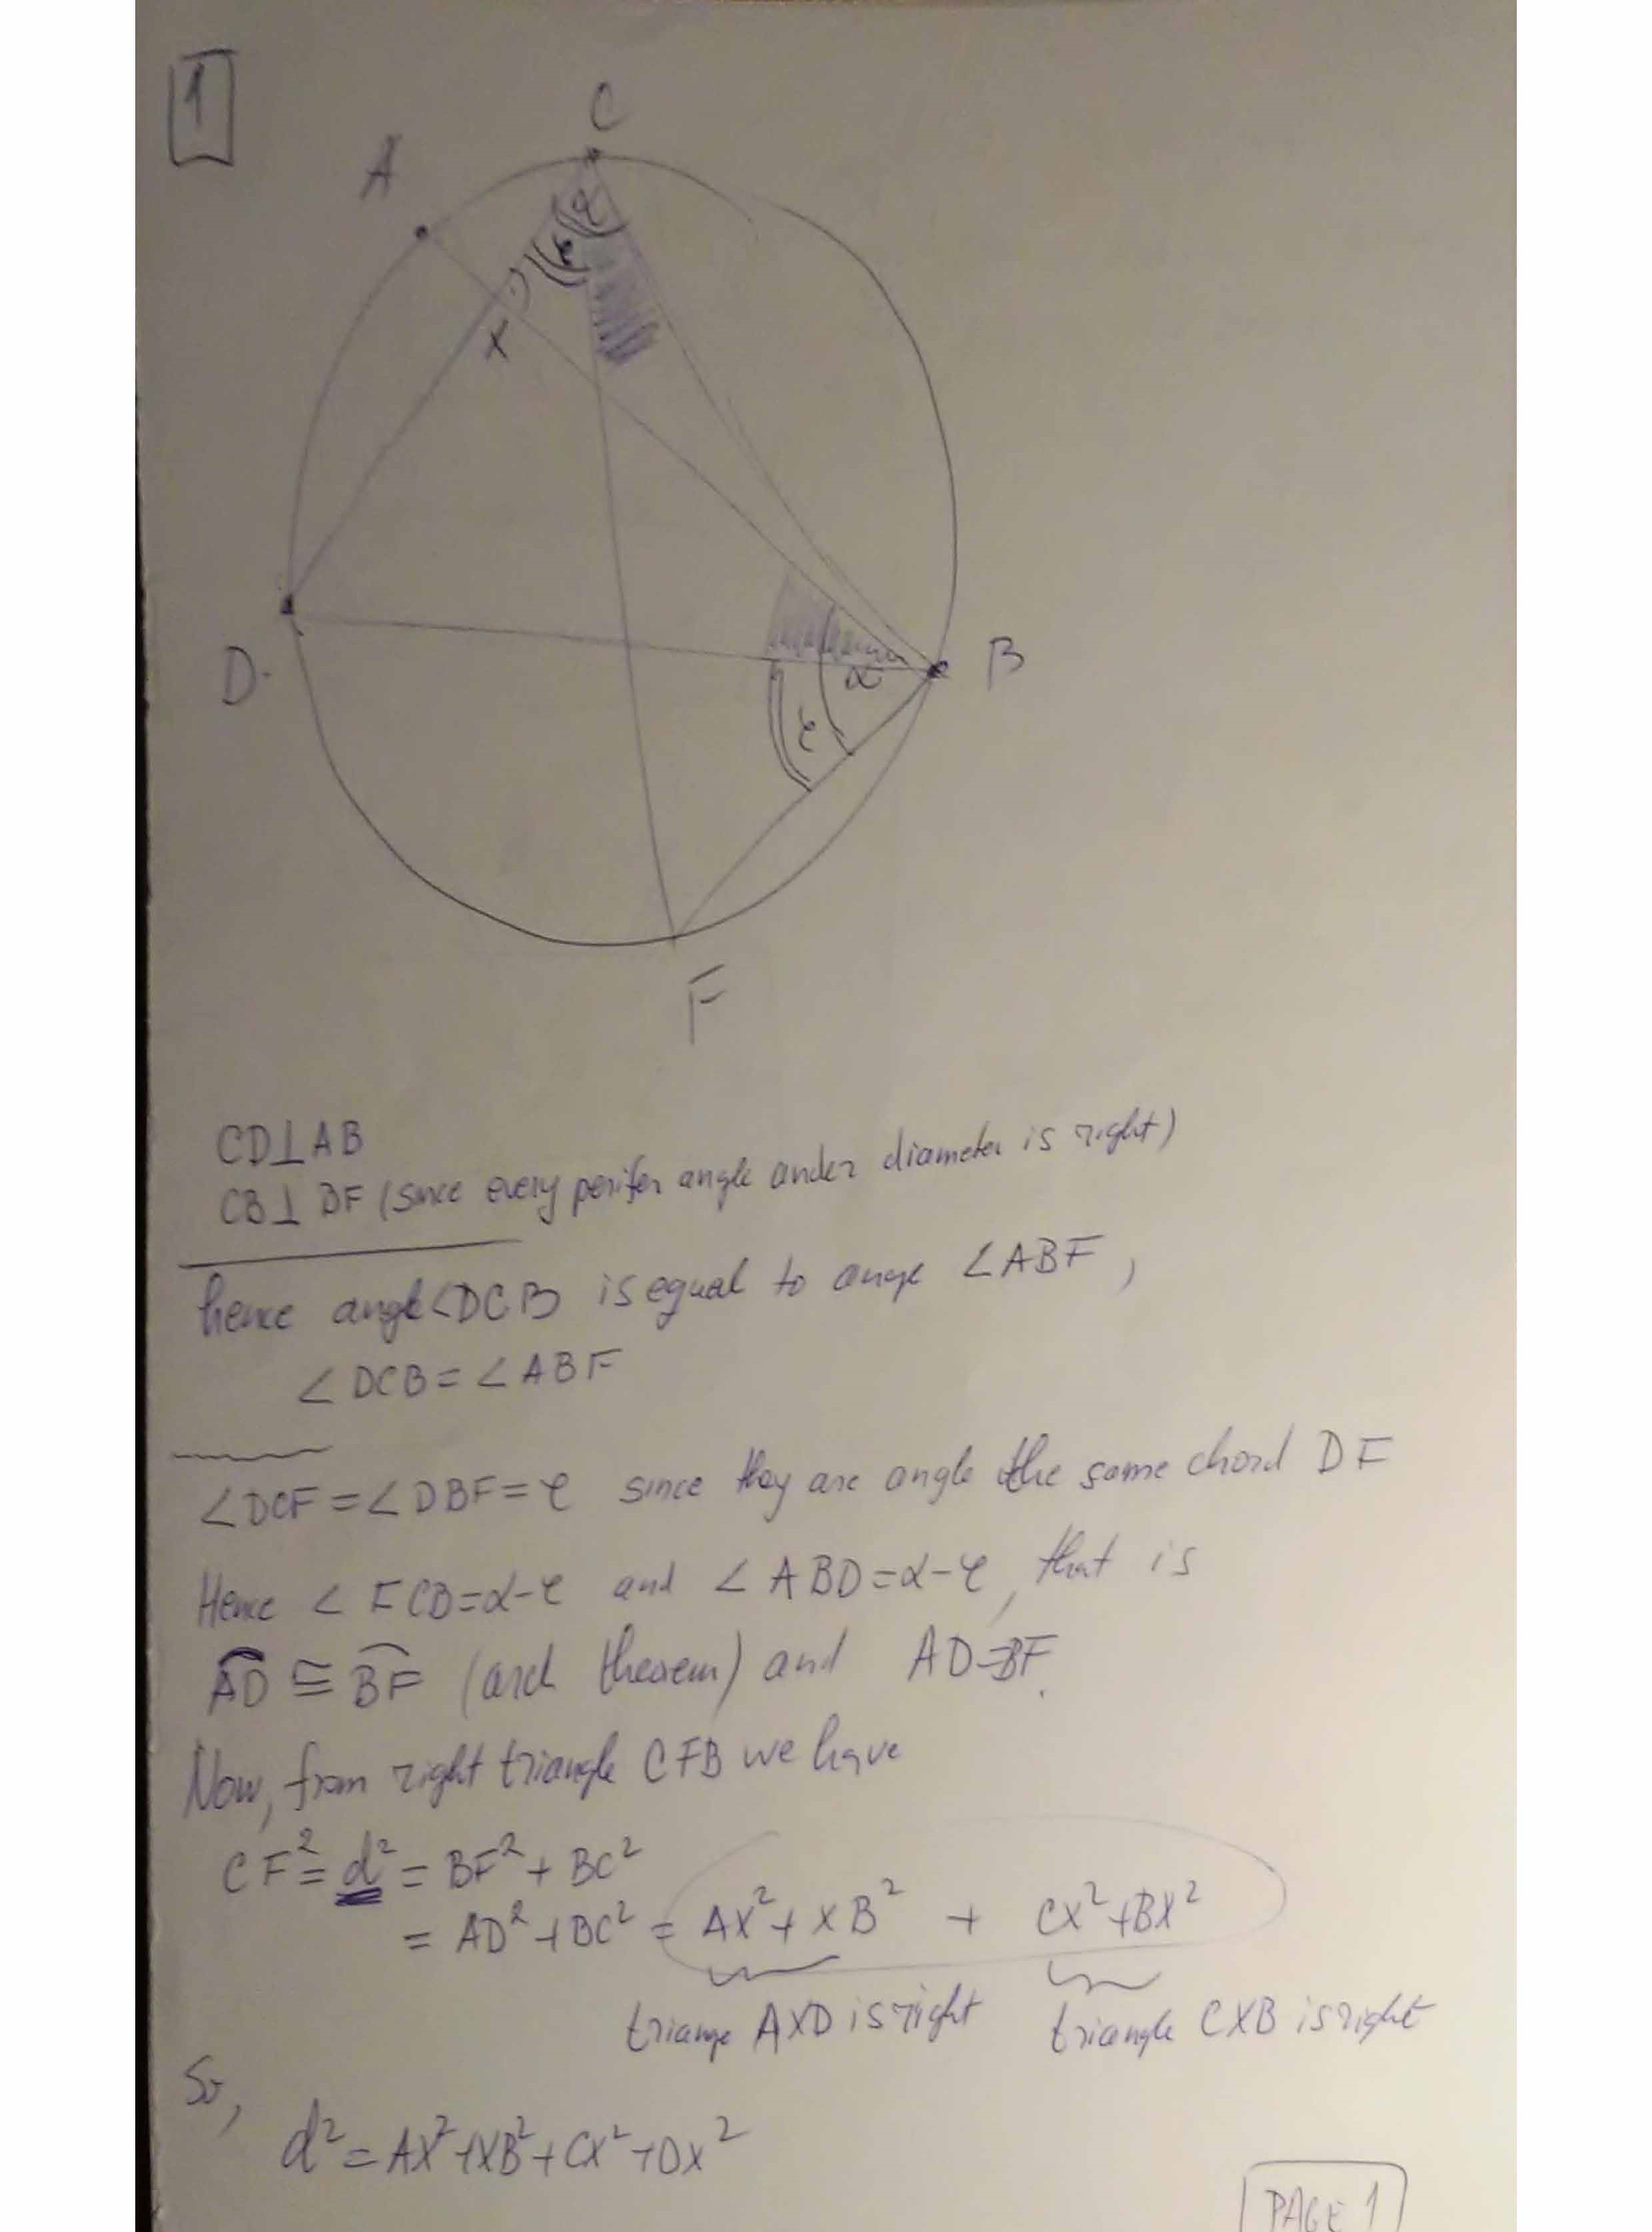 1
C
A
α
φ
X
D
B
α
φ
F
CD⊥AB
CB⊥BF (since every perifer angle under diameter is right)
hence angle ∠DCB is equal to ange ∠ABF,
∠DCB = ∠ABF
∠DCF = ∠DBF = φ since they are angle the same chord DF
Hence ∠FCB = α-φ and ∠ABD = α-φ, that is
AD ≅ BF (arch theorem) and AD = BF.
Now, from right triangle CFB we have
CF² = d² = BF² + BC²
= AD² + BC² = AX² + XB² + CX² + BX²
triange AXD is right triangle CXB is right
So,
d² = AX² + XB² + CX² + DX²
PAGE 1